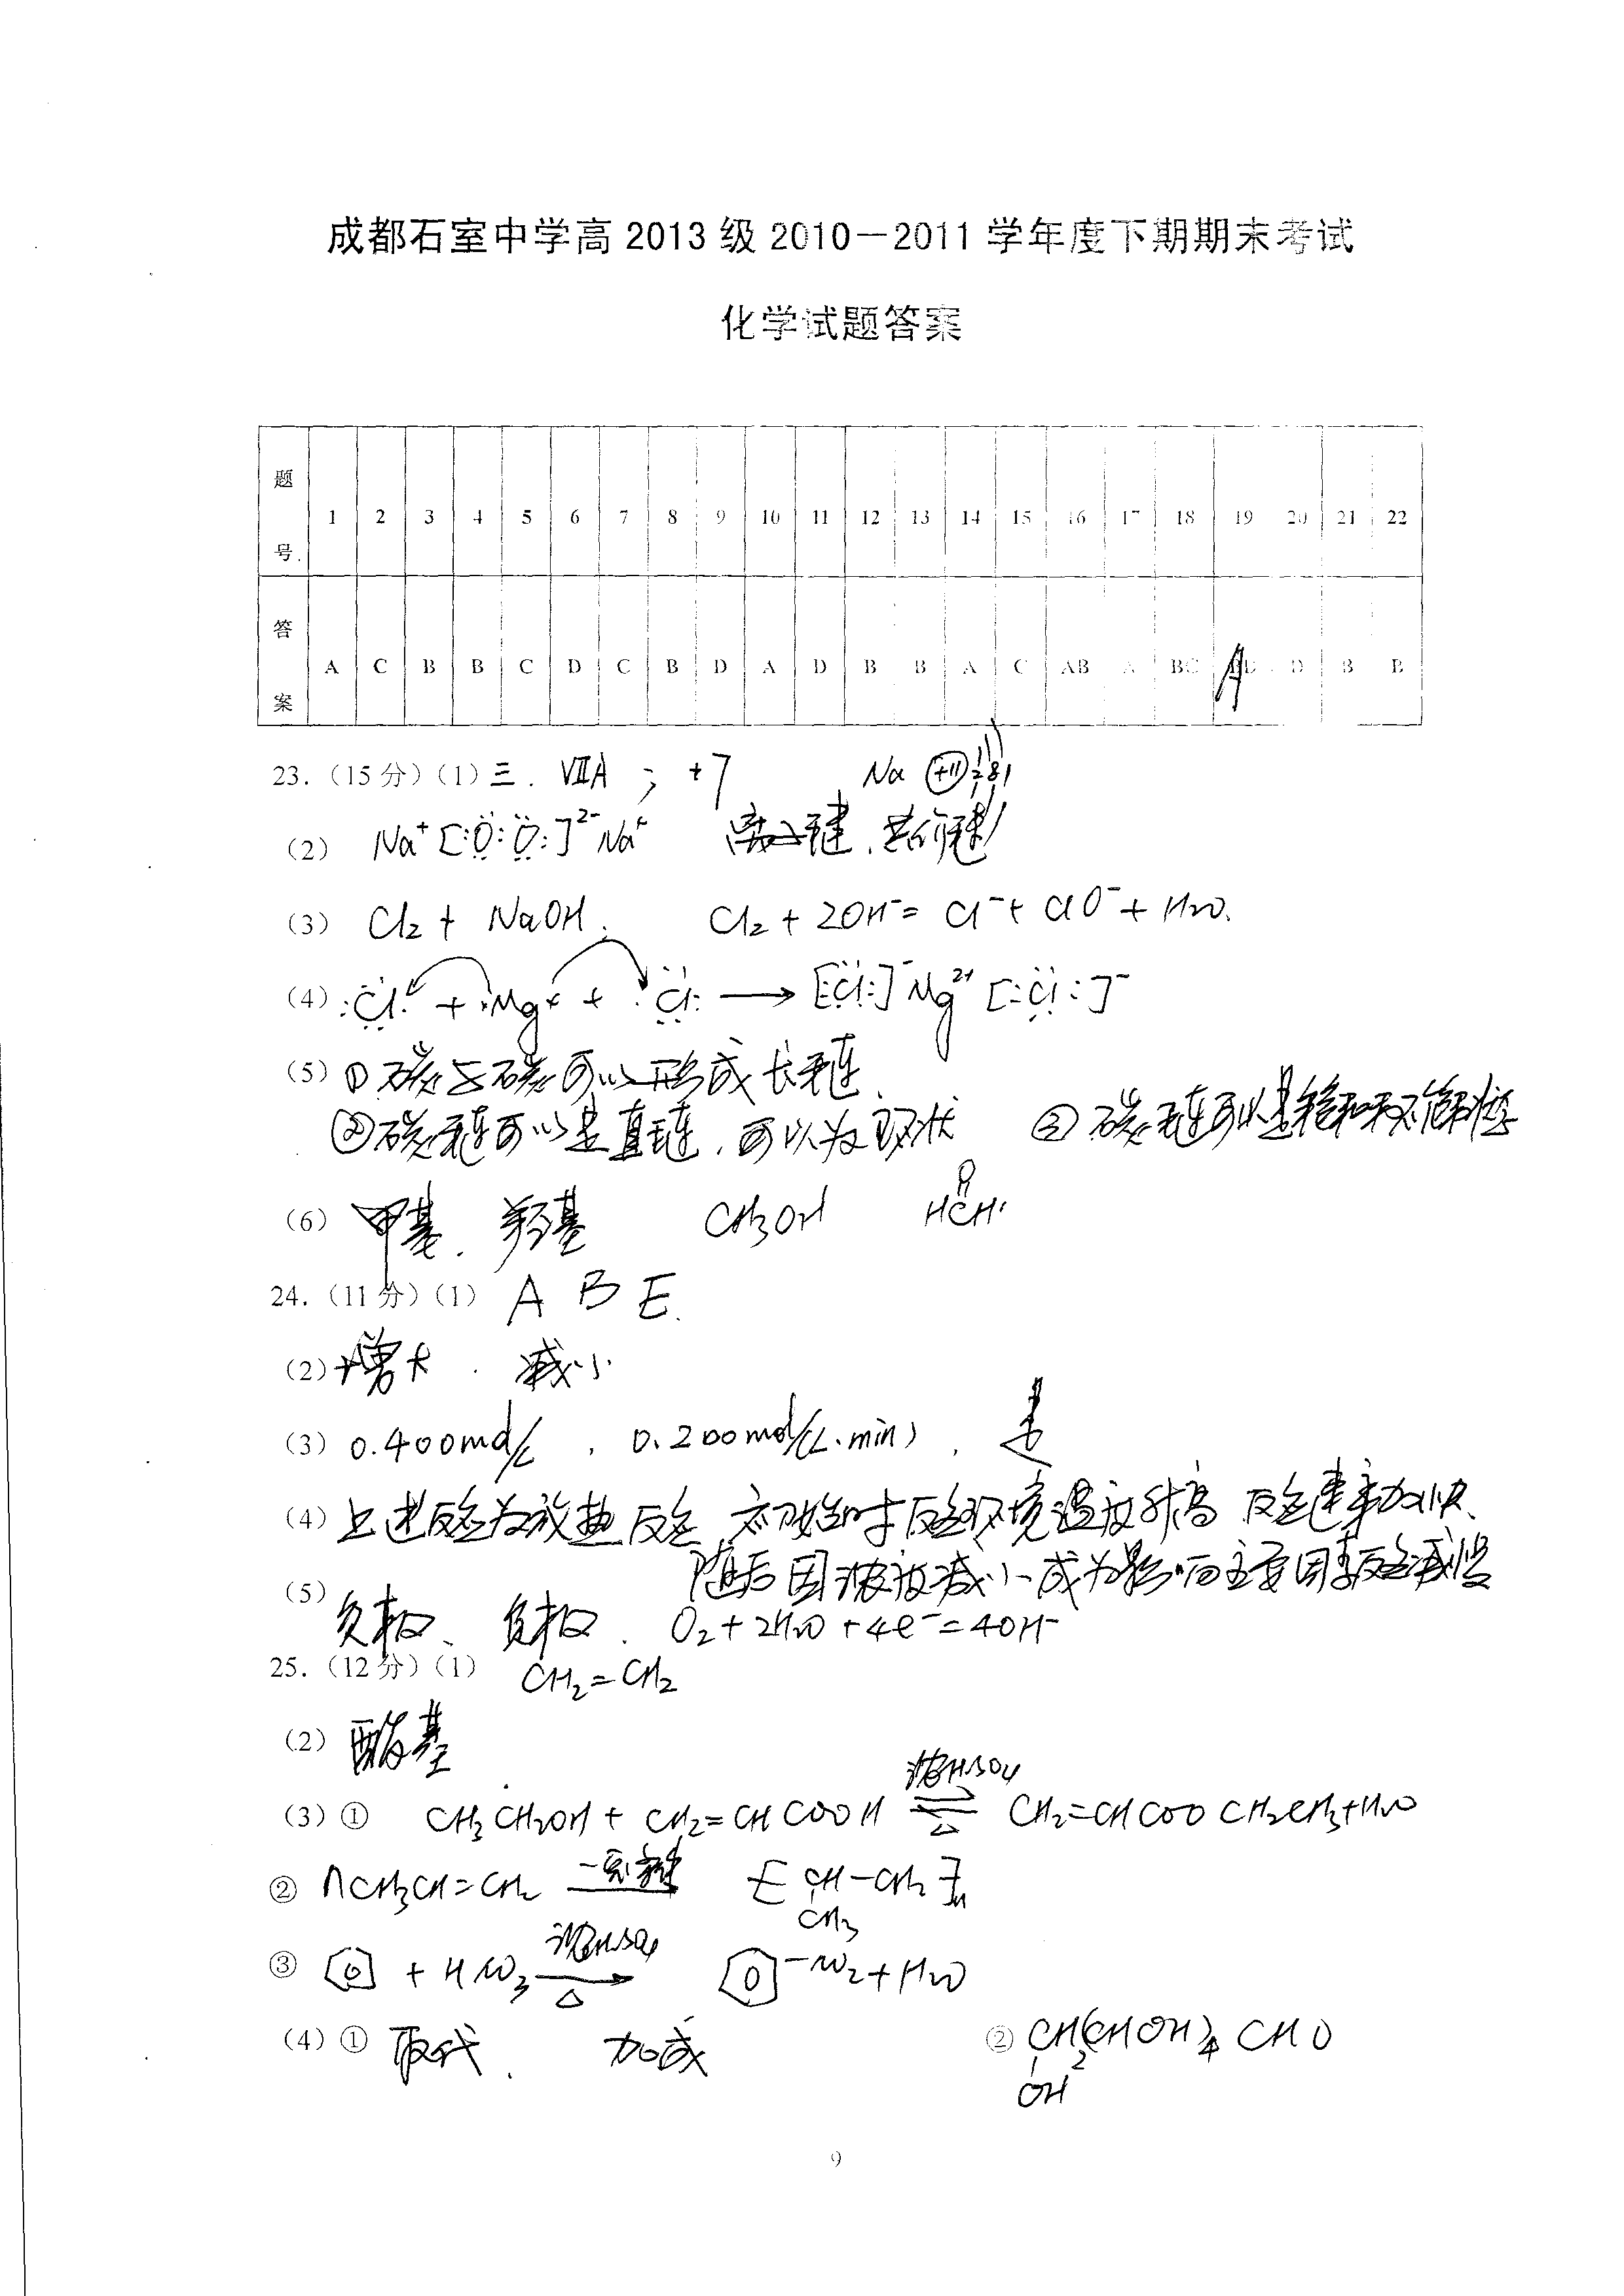 成都石室中学高 2013 级 2010－2011 学年度下期期末考试
化学试题答案
题号 1 2 3 4 5 6 7 8 9 10 11 12 13 14 15 16 17 18 19 20 21 22
答案 A C B B C D C B D A D B B A C AB A BC A D B B
23.（15分）（1）三. ⅦA ; +7 Na (+11) 2 8 1
（2） Na⁺[:Ö:Ö:]²⁻Na⁺ 离子键、共价键
（3） Cl₂ + NaOH. Cl₂ + 2OH⁻ = Cl⁻ + ClO⁻ + H₂O.
（4） :Cl· + ·Mg× + ·Cl: → [:Cl:]⁻Mg²⁺[:Cl:]⁻
（5）① 碳与碳可以形成长链.
②碳链可以是直链, 可以为环状 ③ 碳链可以是饱和和不饱和
（6） 甲基. 羟基 CH₃OH HCH O
24.（11分）（1） A B E.
（2）增大 . 减小
（3）0.400mol/L , 0.200mol/(L·min) ,
（4）上述反应为放热反应, 开始时反应环境温度升高 反应速率加快、
随后因浓度减小成为影响主要因素反应减慢
（5）
负极、负极. O₂ + 2H₂O + 4e⁻ = 4OH⁻
25.（12分）（1） CH₂=CH₂
（2） 酯基
（3）① CH₃CH₂OH + CH₂=CHCOOH ⇌ 浓H₂SO₄ △ CH₂=CHCOOCH₂CH₃+H₂O
② nCH₃CH=CH₂ 一定条件 [CH-CH₂]n CH₃
③ ⌬ + HNO₃ 浓H₂SO₄ △ → ⌬-NO₂ + H₂O
（4）① 取代. 加成 ② CH₂(CHOH)₄CHO OH
9